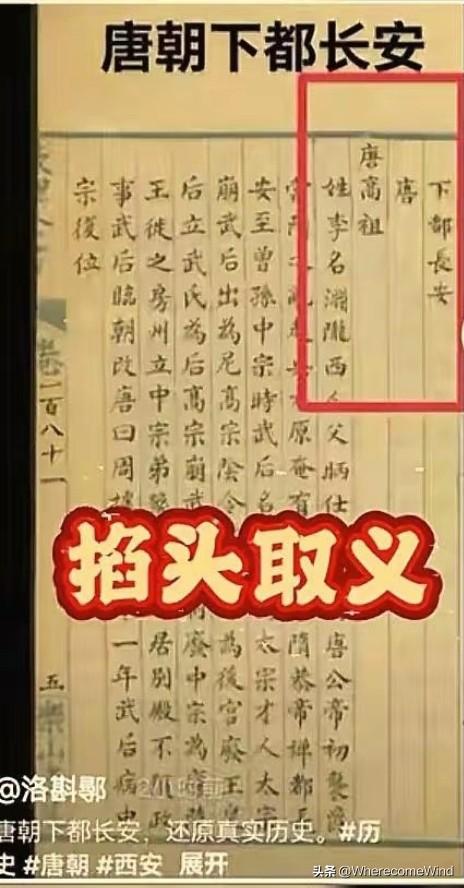 唐朝下都长安
下都長安
唐
唐高祖
姓李名淵隴西父昞仕唐公帝初襲爵
原奄有隋恭帝禅都長
安至曾孫中宗時武后名太宗才人太宗
崩武后出為尼高宗陰令為後宮廢王皇
后立武氏為后高宗崩武廢中宗為
王徙之房州立中宗弟居別殿不預政
事武后臨朝改唐曰周據一年武后病中
宗復位
卷一百八十一
五
掐头取义
@洛斟鄩
唐朝下都长安，还原真实历史。#历
史 #唐朝 #西安 展开
头条 @WherecomeWind